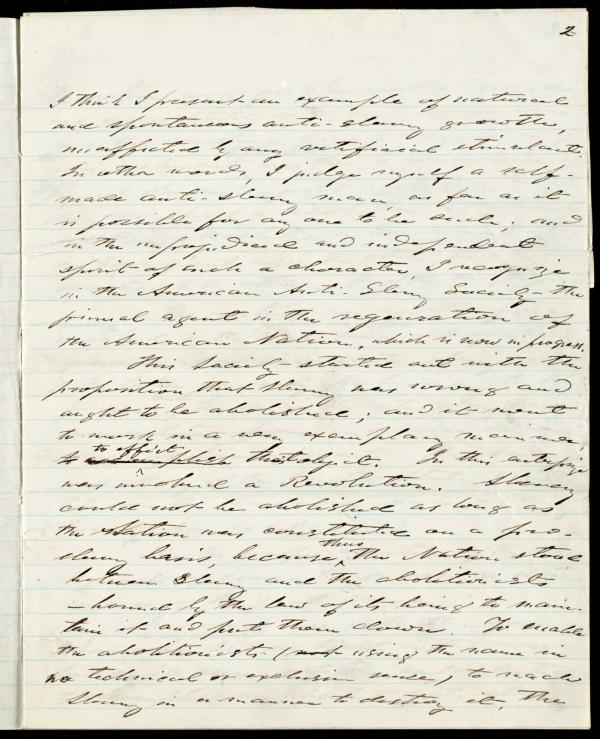 2
I think I present an example of natural
and spontaneous anti-slavery growth,
unaffected by any artificial stimulant.
In other words, I judge myself a self-
made anti-slavery man, as far as it
is possible for any one to be such; and
in the unprejudiced and independent
spirit of such a character, I recognize
in the American Anti-Slavery Society the
primal agent in the regeneration of
the American Nation, which is now in progress.
This Society started out with the
proposition that slavery was wrong and
ought to be abolished; and it went
to work in a very exemplary manner,
to effect
to accomplish that object. In this enterprize
was involved a Revolution. Slavery
could not be abolished as long as
the Nation was constituted on a pro-
thus
slavery basis, because, the Nation stood
between Slavery and the abolitionists
- bound by the law of its being to main-
tain it and put them down. To enable
the abolitionists (not using the name in
no technical or exclusive sense,) to reach
Slavery in a manner to destroy it, the